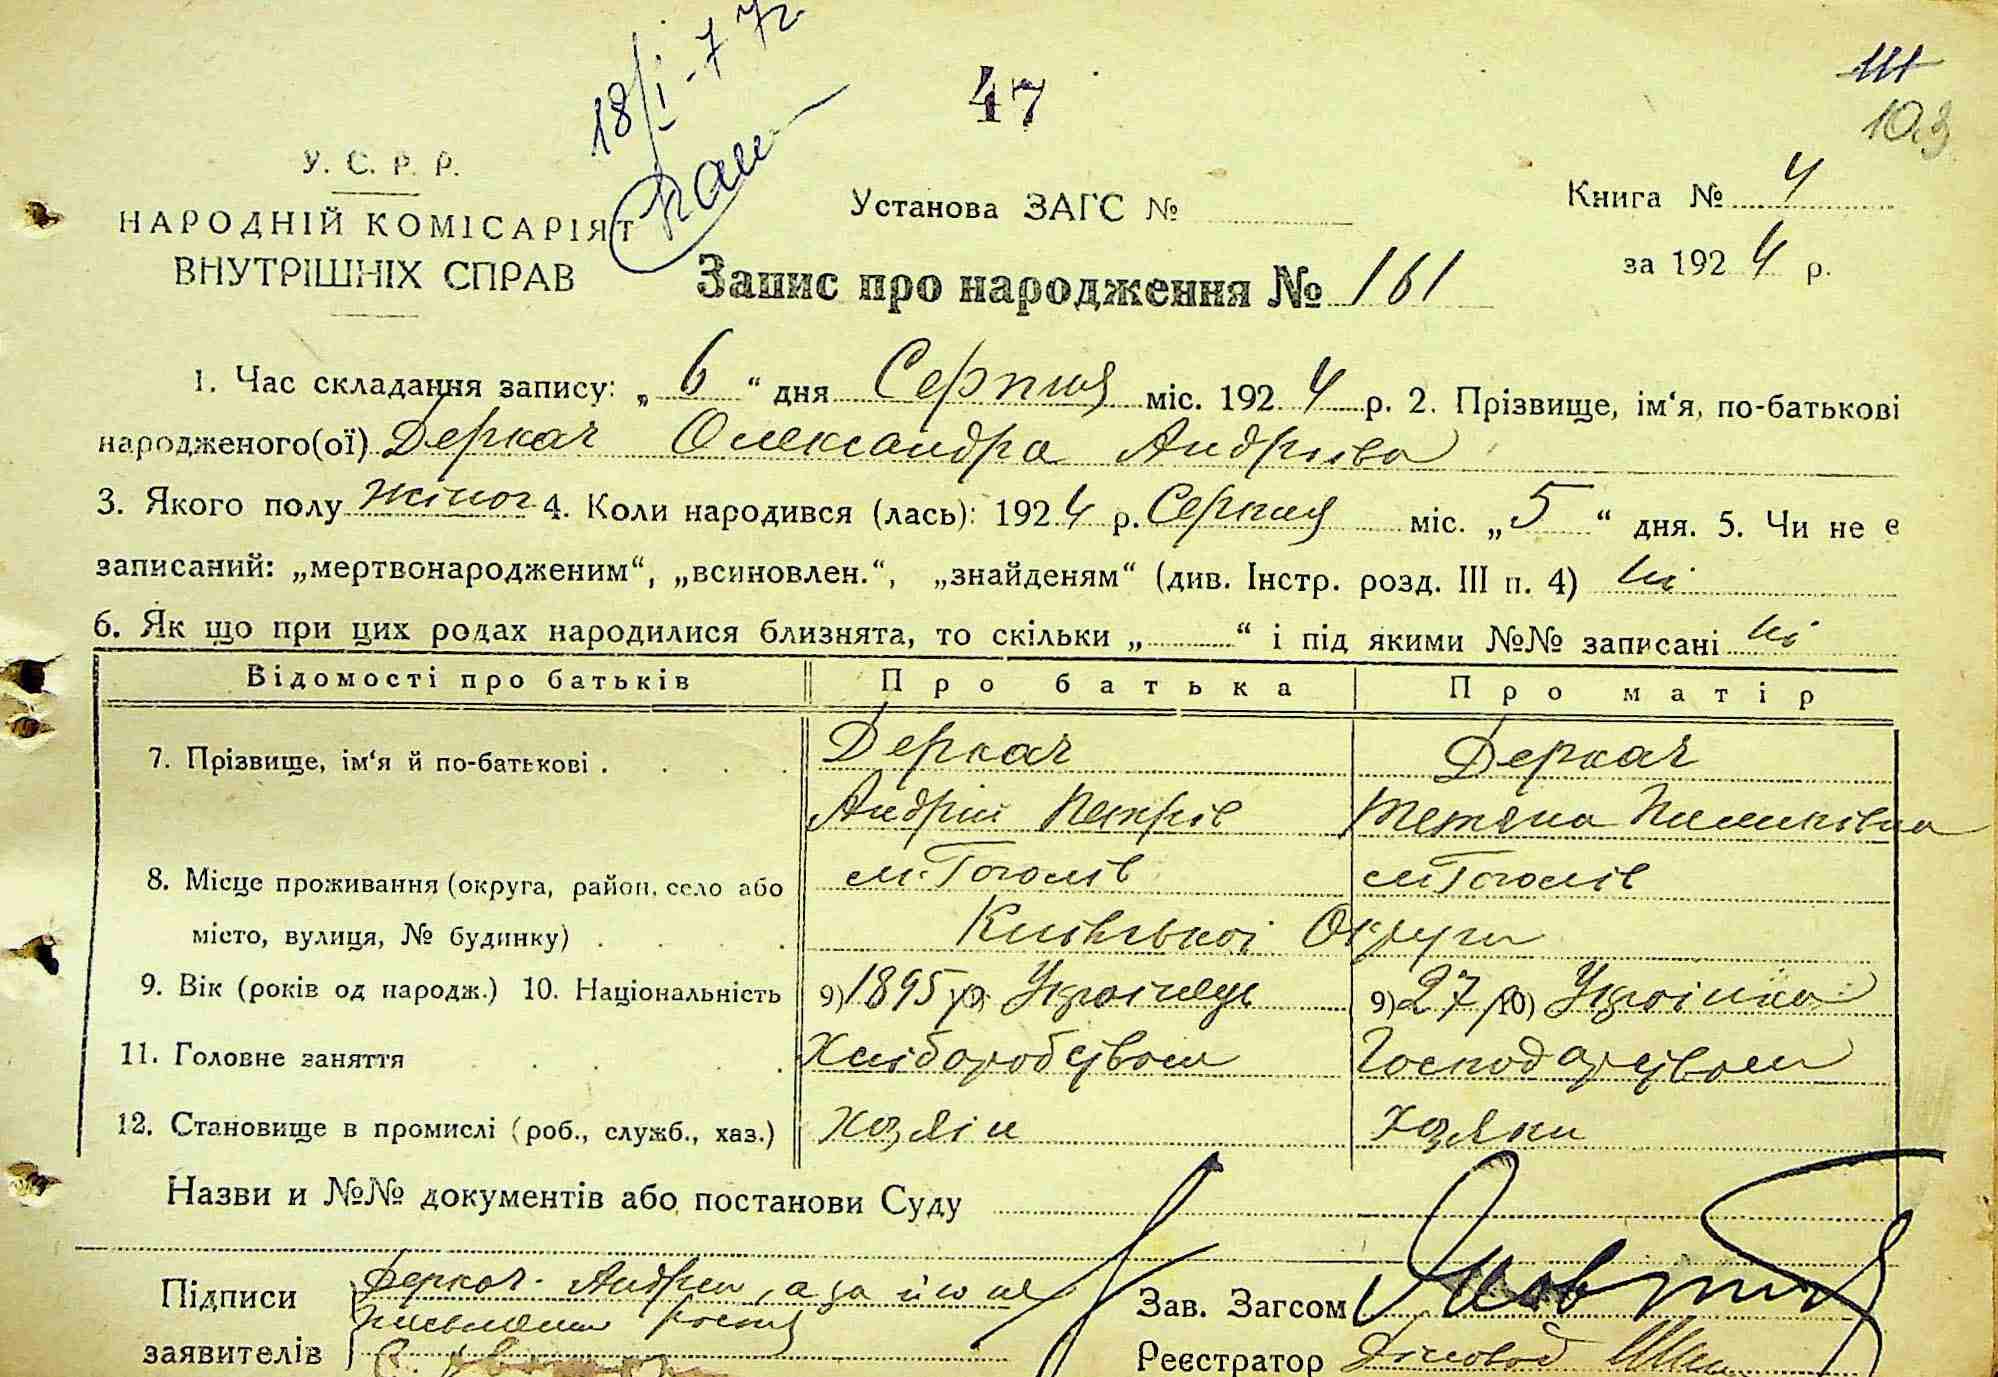 18/I-77г
47
111
103
У. С. Р. Р.
НАРОДНІЙ КОМІСАРІЯТ
ВНУТРІШНІХ СПРАВ
Установа ЗАГС №
Книга № 4
за 1924 р.
Запис про народження № 161
1. Час складання запису: „6“ дня Серпня міс. 1924 р. 2. Прізвище, ім‘я, по-батькові
народженого(ої) Деркач Олександра Андріівна
3. Якого полу жіноч 4. Коли народився (лась): 1924 р. Серпня міс. „5“ дня. 5. Чи не є
записаний: „мертвонародженим“, „всиновлен.“, „знайденям“ (див. Інстр. розд. III п. 4) ні
6. Як що при цих родах народилися близнята, то скільки „ “ і під якими №№ записані ні
Відомості про батьків Про батька Про матір
7. Прізвище, ім‘я й по-батькові . Деркач Деркач
Андрій Петрів Тетяна
8. Місце проживання (округа, район, село або м. Гоголів м. Гоголів
місто, вулиця, № будинку) . Київської Округи
9. Вік (років од народж.) 10. Національність 9) 1895 р. Українець 9) 27 р. 10) Українка
11. Головне заняття Хліборобством Господарством
12. Становище в промислі (роб., служб., хаз.) хозяін хозяйка
Назви и №№ документів або постанови Суду
Підписи Деркач Андрей, а за його
заявителів
Зав. Загсом
Реєстратор Діловод